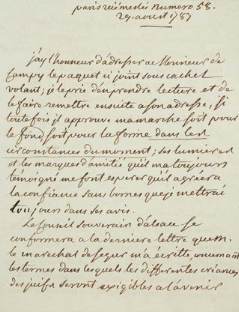 paris rue meslé Numero 58.
29. aoust 1787
j'ay l'honneur d'adresser a Monsieur de
le paquet cy joint sous cachet
volant; je le prie d'en prendre lecture et de
le faire remettre ensuite a son adresse, si
toutefois il approuve ma marche soit pour
le fond soit pour la forme dans les
circonstances du moment; ses lumieres
et les marques d'amitié qu'il m'a toujours
temoigné me font esperer qu'il agréera
la confiance sans bornes que je mettrai
toujours dans ses avis.
Le conseil souverain d'alsace se
conformera a la derniere lettre que m.
le marechal de segur m'a écritte, en
les termes dans lesquels les differentes créances
des juifs seront exigibles a l'avenir